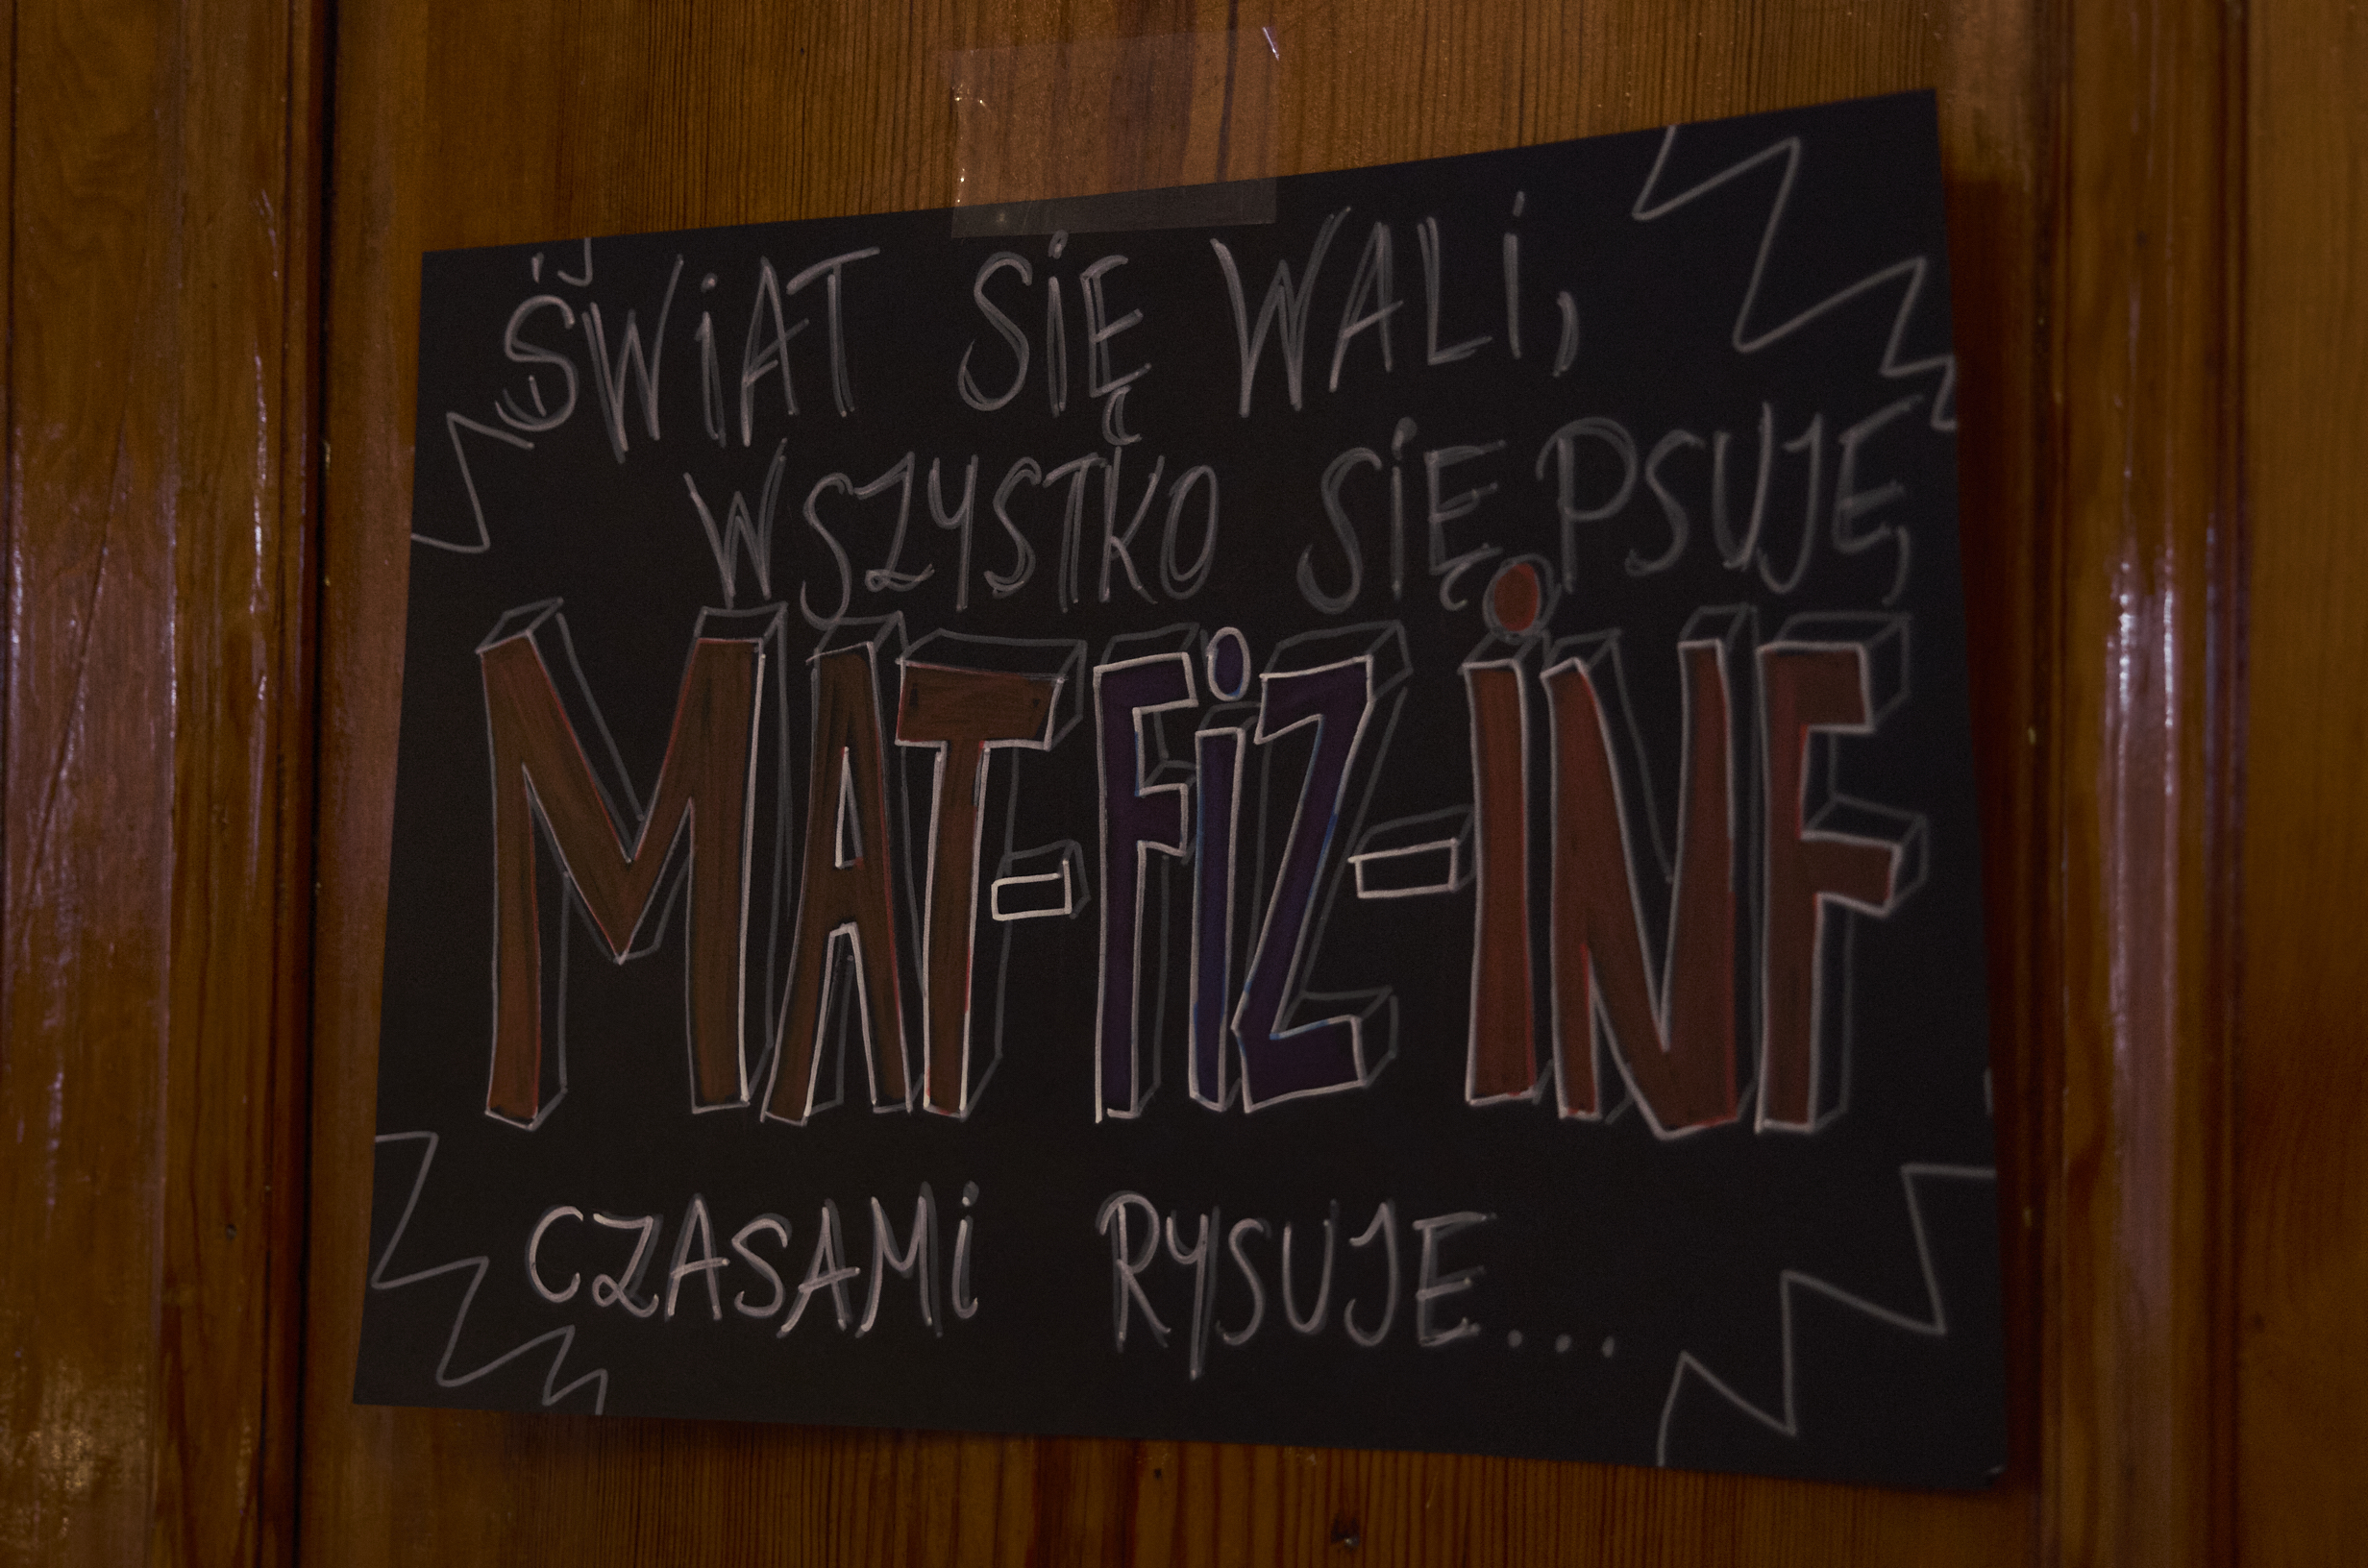 ŚWiAT SiĘ WALi,
WSZYSTKO SiĘ PSUJE,
MAT-FiZ-iNF
CZASAMi RYSUJE...